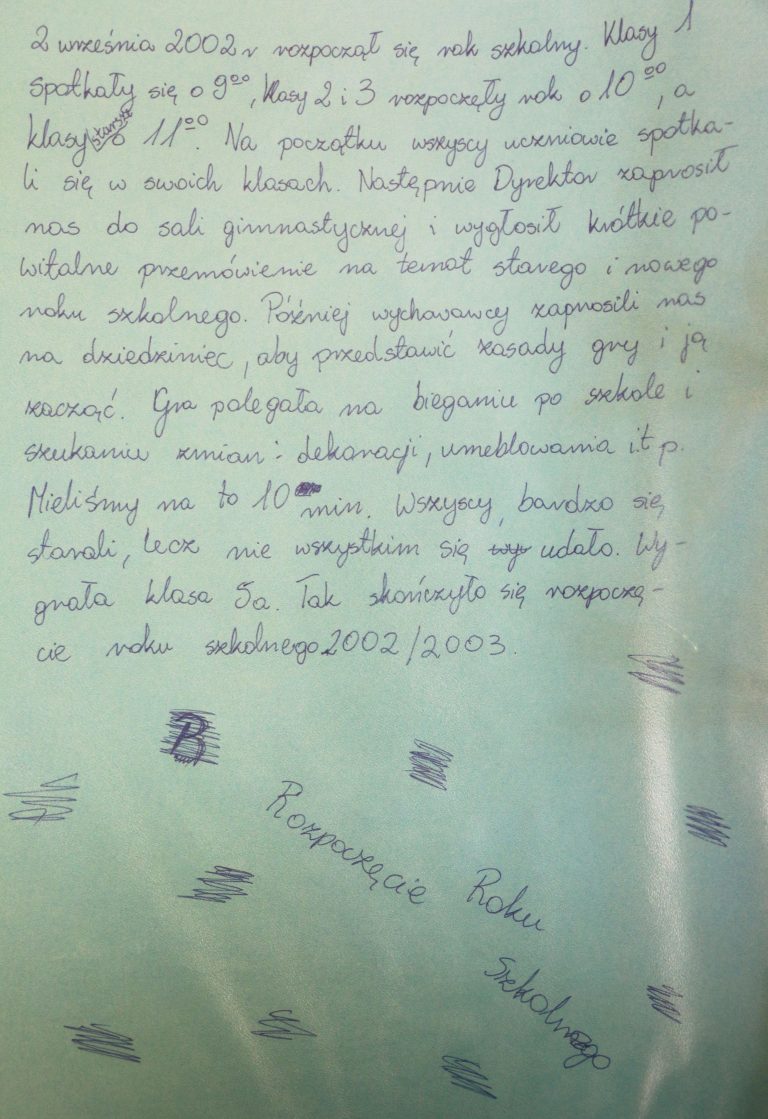 2 września 2002 r rozpoczął się rok szkolny. Klasy 1
spotkały się o 9⁰⁰, klasy 2 i 3 rozpoczęły rok o 10⁰⁰, a
klasy starsze o 11⁰⁰. Na początku wszyscy uczniowie spotka-
li się w swoich klasach. Następnie Dyrektor zaprosił
nas do sali gimnastycznej i wygłosił krótkie po-
witalne przemówienie na temat starego i nowego
roku szkolnego. Później wychowawcy zaprosili nas
na dziedziniec, aby przedstawić zasady gry i ją
zacząć. Gra polegała na bieganiu po szkole i
szukaniu zmian: dekoracji, umeblowania i.t p.
Mieliśmy na to 10 min. Wszyscy bardzo się
starali, lecz nie wszystkim się udało. Wy-
grała klasa 5a. Tak skończyło się rozpoczę-
cie roku szkolnego 2002/2003.
B
Rozpoczęcie Roku
Szkolnego